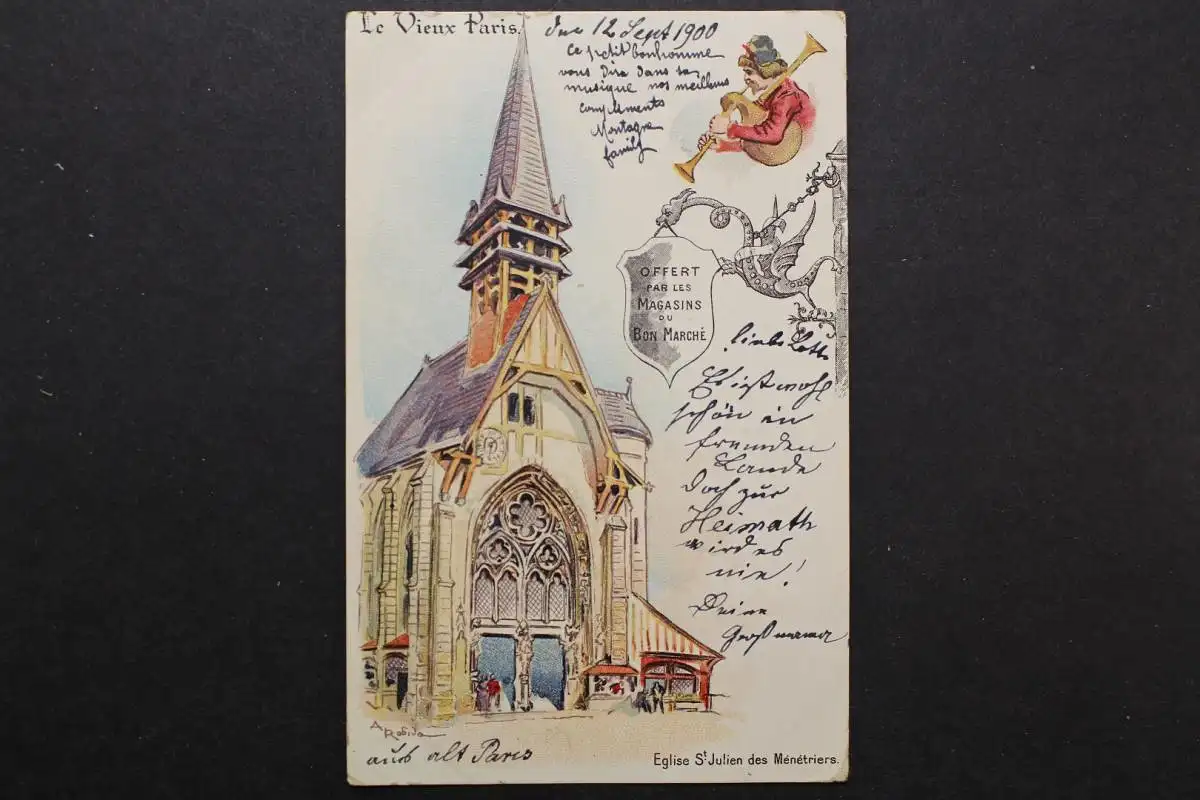 Le Vieux Paris.
den 12 Sept 1900
Ce petit bonhomme
vous dira dans sa
musique nos meilleurs
compliments
Montagne
family
OFFERT
PAR LES
MAGASINS
DU
BON MARCHÉ
liebe
Es ist wohl
schön in
fremden
Lande
doch zur
Heimath
wird es
nie!
Deine
Großmama
A Robida
aus alt Paris
Eglise St Julien des Ménétriers.